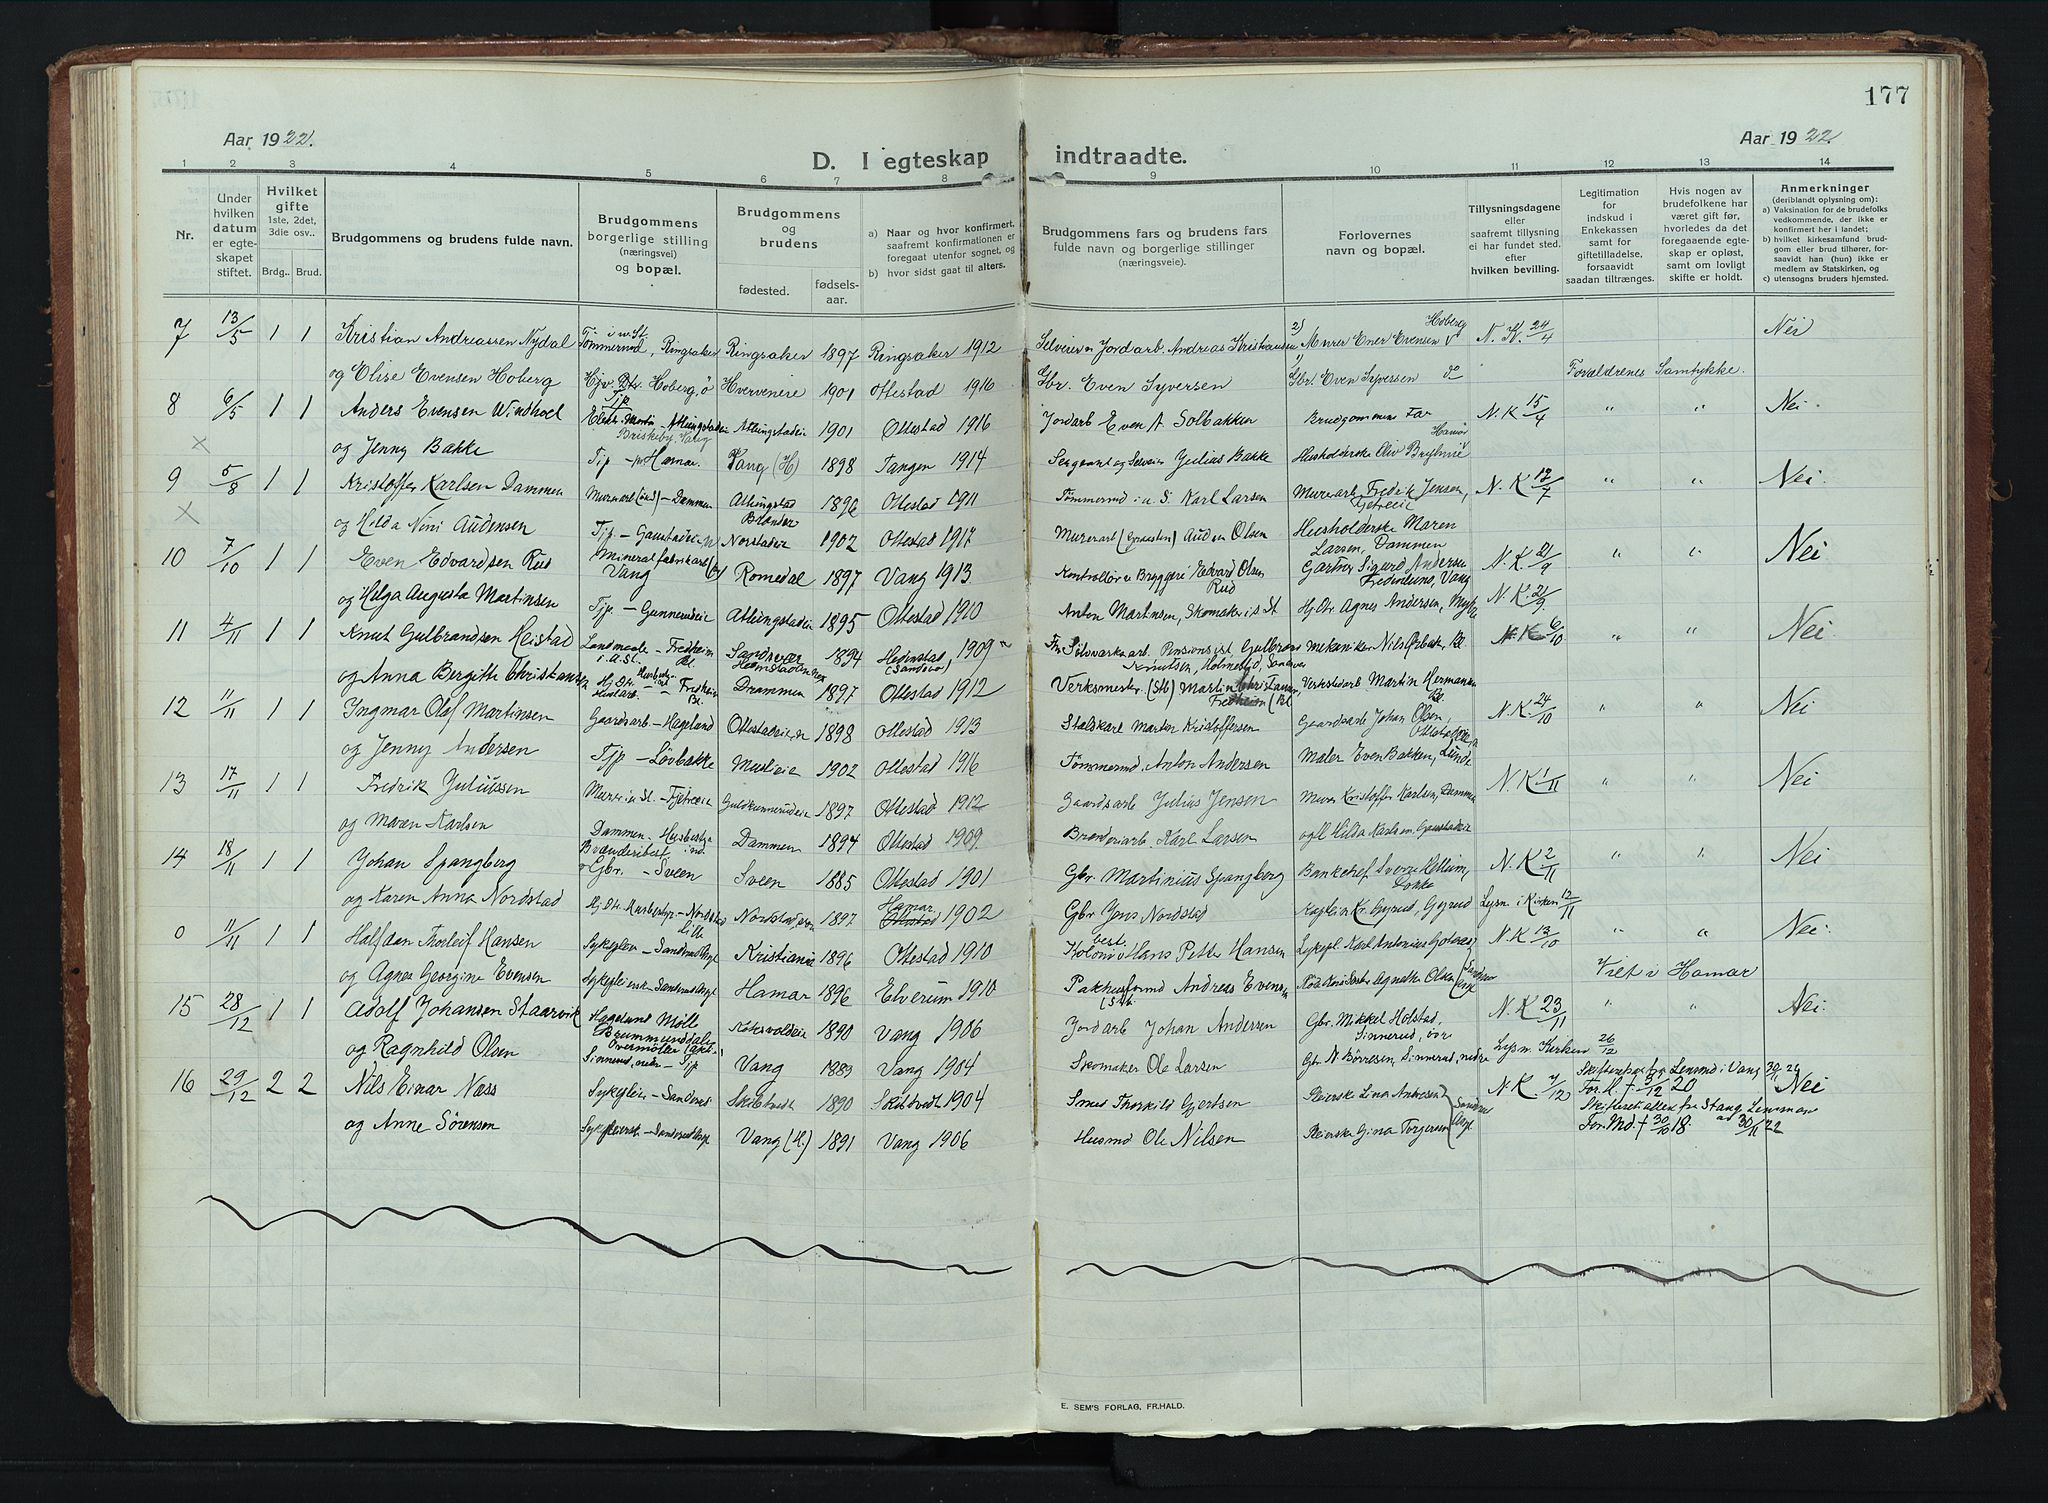 177
Aar 1922.
Aar 1922.
D. I egteskap indtraadte.
1 2 3 4 5 6 7 8 9 10 11 12 13 14
Nr.
Under hvilken datum er egteskapet stiftet.
Hvilket gifte 1ste, 2det, 3die osv..
Brdg.. Brud.
Brudgommens og brudens fulde navn.
Brudgommens borgerlige stilling (næringsvei) og bopæl.
Brudgommens og brudens
fødested. fødselsaar.
a) Naar og hvor konfirmert, saafremt konfirmationen er foregaat utenfor sognet, og
b) hvor sidst gaat til alters.
Brudgommens fars og brudens fars fulde navn og borgerlige stillinger (næringsveie).
Forlovernes navn og bopæl.
Tillysningsdagene eller saafremt tillysning ei har fundet sted. efter hvilken bevilling.
Legitimation for indskud i Enkekassen samt for giftetilladelse, forsaavidt saadan tiltrænges.
Hvis nogen av brudefolkene har været gift før, hvorledes da det foregaaende egteskap er opløst, samt om lovligt skifte er holdt.
Anmerkninger (deriblandt oplysning om):
a) Vaksination for de brudefolks vedkommende, der ikke er konfirmert her i landet;
b) hvilket kirkesamfund brudgom eller brud tilhører, forsaavidt han (hun) ikke er medlem av Statskirken, og
c) utensogns bruders hjemsted.
7 13/5 1 1 Kristian Andreassen Nydal Tømmermd, i w. St. Ringsaker Ringsaker 1897 Ringsaker 1912 Selveier Jordarb. Andreas Kristiansen 2) Murer Ener Evensen Hoberg N. K. 24/4 Nei
og Elise Evensen Hoberg Hjv. Dtr. Hoberg, ö Hverveneie 1901 Ottestad 1916 Gbr. Even Syversen 1) Gbr. Even Syversen Forældrenes Samtykke.
8 6/5 1 1 Anders Evensen Windhoel 1901 Ottestad 1916 Jordarb Even A. Solbakken Brudgommens Far N. K 15/4 " " Nei
X og Jenny Bakke Tjp - Hamar. Vang (H) 1898 Tangen 1914 Sergeant og Selveier Julius Bakke Husholderske Oliv
9 5/8 1 1 Kristoffer Karlsen Dammen Murerarb (ind) - Dammen Atlungstad Brænderi 1896 Ottestad 1911 Tømmermd i a. S. Karl Larsen Murerarb. Fredrik Jensen, Fjetreeie N. K 12/7 " " Nei.
X og Hilda Noni Audensen Tjp - Norstadeie 1902 Ottestad 1917 Murerarb (Graasten) Auden Olsen Husholderske Maren Larsen, Dammen
10 7/10 1 1 Even Edvardsen Rud Mineralfabrikarb Vang Romedal 1897 Vang 1913. Kontrollør v Bryggeri Edvard Olsen Rud Gartner Sigurd Andersen Fredenlund, Vang N. K. 21/9 " " Nei
og Helga Augusta Martinsen Tjp. - Gunnerudeie Atlungstadeie 1895 Ottestad 1910 Anton Martinsen, Skomaker i s. St Hj. Dtr. Agnes Andersen, N. K. 21/9
11 4/11 1 1 Knut Gulbrandsen Heistad Landmaaler - Fredheim i. A. St. Bl. Sandsvær 1894 Hedenstad (Sandsvær) 1909 Fr. Sölvverksarb. Pensionist, Gulbrand Knutsen, Mekaniker Nils N K 6/10 " " Nei.
og Anna Bergitte Christiansen Hj. Dtr. Fredheim Bl. Drammen 1897 Ottestad 1912 Verksmester (Stb) Martin Christiansen, Fredheim (Bl. Verkstedarb Martin Hermansen Bl.
12 11/11 1 1 Ingmar Olaf Martinsen Gaardsarb - Hageland Ottestadeie 1898 Ottestad 1913 Stalskarl Marten Kristoffersen Gaardsarb Johan Olsen, N. K. 24/10 " " Nei
og Jenny Andersen Tjp - Lövbakke Muslieie 1902 Ottestad 1916 Tømmermd. Anton Andersen Maler Even Bakken, Lunde
13 17/11 1 1 Fredrik Juliussen Murer i a St. - Fjetreeie Guldkunnerudeie 1897 Ottestad 1912 Gaardsarb Julius Jensen Murer Kristoffer Karlsen, Dammen N. K 1/11 " " Nei
og Maren Karlsen Dammen - Husbestyr Dammen 1894 Ottestad 1909 Brænderiarb. Karl Larsen og Hilda Karlsen, Gaustadeie
14 18/11 1 1 Johan Spangberg Gbr. - Sveen Sveen 1885 Ottestad 1901 Gbr Martinius Spangberg Bankchef Sverre Kellum, N. K 2/11 " " Nei
og Karen Anna Nordstad Hj Dtr Husbestyr - Nordstad Lille Nordstad, 1897 Hamar Ottestad 1902 Gbr Jens Nordstad Kaptein Kr. Gyrud, Gyrud Lysn. i Kirken 12/11
0 11/11 1 1 Halfdan Thorleif Hansen Sykepleier - Sanderud Asyl Kristiania 1896 Ottestad 1910 Hans Petter Hansen Sykepl. Karl Antonius N. K 13/10 " " Nei.
og Agnes Georgine Evensen Sykepleiersk - Sanderud Asyl Hamar 1896 Elverum 1910 Pakhusformd Andreas Evensen (Stb. Agnethe Olsen Viet i Hamar
15 28/12 1 1 Adolf Johansen Staarvik Hageland Mölle Brummunddalen Overmøller 1890 Vang 1906 Jordarb Johan Andersen Gbr. Mikkel Holstad, Sinnerud, övr N. K 23/11 " " Nei.
og Ragnhild Olsen Sinnerud, nedr - Tjp Vang 1883 Vang 1904 Skomaker Ole Larsen Gbr. N. Börresen, Sinnerud, nedre Lysn. Kirken 26/12
16 29/12 2 2 Nils Einar Næss Sykepleier - Sanderud Skibtvedt 1890 Skibtvedt 1904 Smed Thorkild Gjertsen Pleierske Lina Andresen N K. 7/12 Skifteattest fra Lensmd i Vang For. H † 3/12 20 Nei
og Anne Sörensen Sykepleiersk - Sanderud Asyl Vang (H.) 1891 Vang 1906 Husmd Ole Nilsen Pleierske Gina Torgersen Sanderud Asyl Skifteattest fra Stange Lensman ad 30/11 22 For. Md. † 30/10 18.
E. SEM'S FORLAG, FR.HALD.